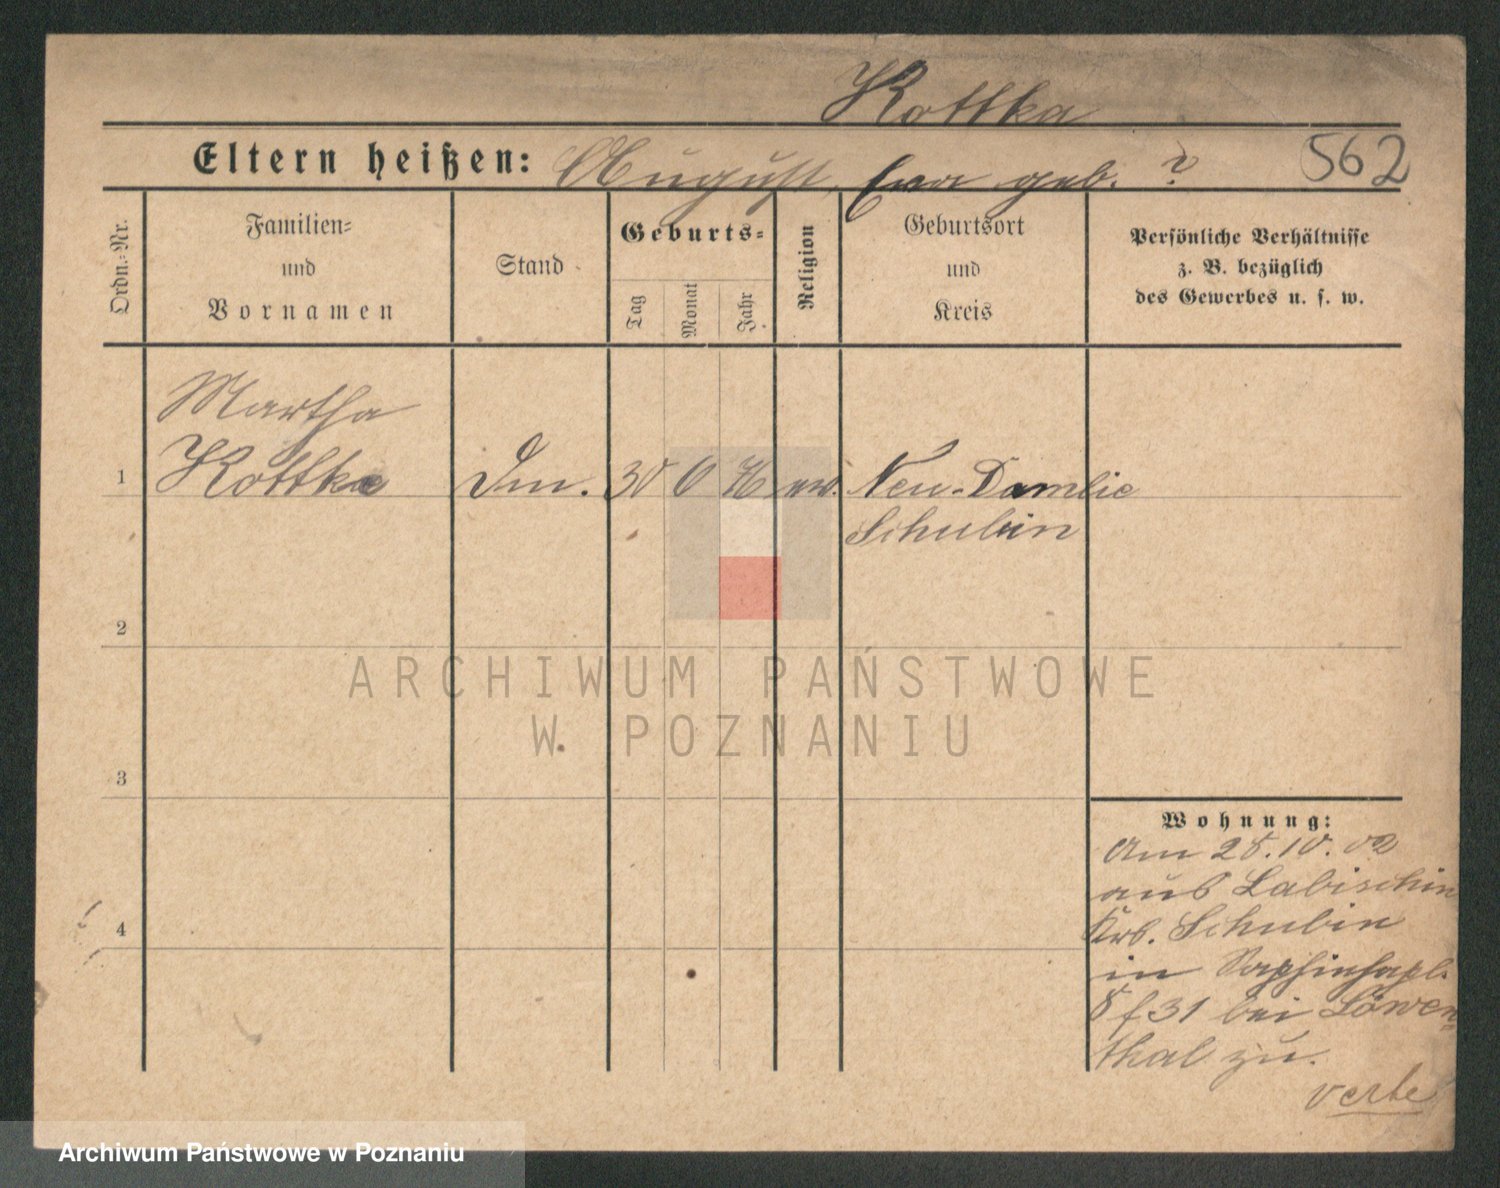 Kottka
Eltern heißen: August, Eva geb. ? 562
Ordn.-Nr.
Familien-
und
Vornamen
Stand
Geburts-
Tag
Monat
Jahr
Religion
Geburtsort
und
Kreis
Persönliche Verhältnisse
z. B. bezüglich
des Gewerbes u. s. w.
Martha
1 Kottka 30 6 76 ev. Neu-Damlie
Schubin
2
ARCHIWUM PAŃSTWOWE
W POZNANIU
3
4
Wohnung:
Am 28.10.02
aus Labischin
Krs. Schubin
in
8 f 31 bei Löwen-
thal zu.
Archiwum Państwowe w Poznaniu